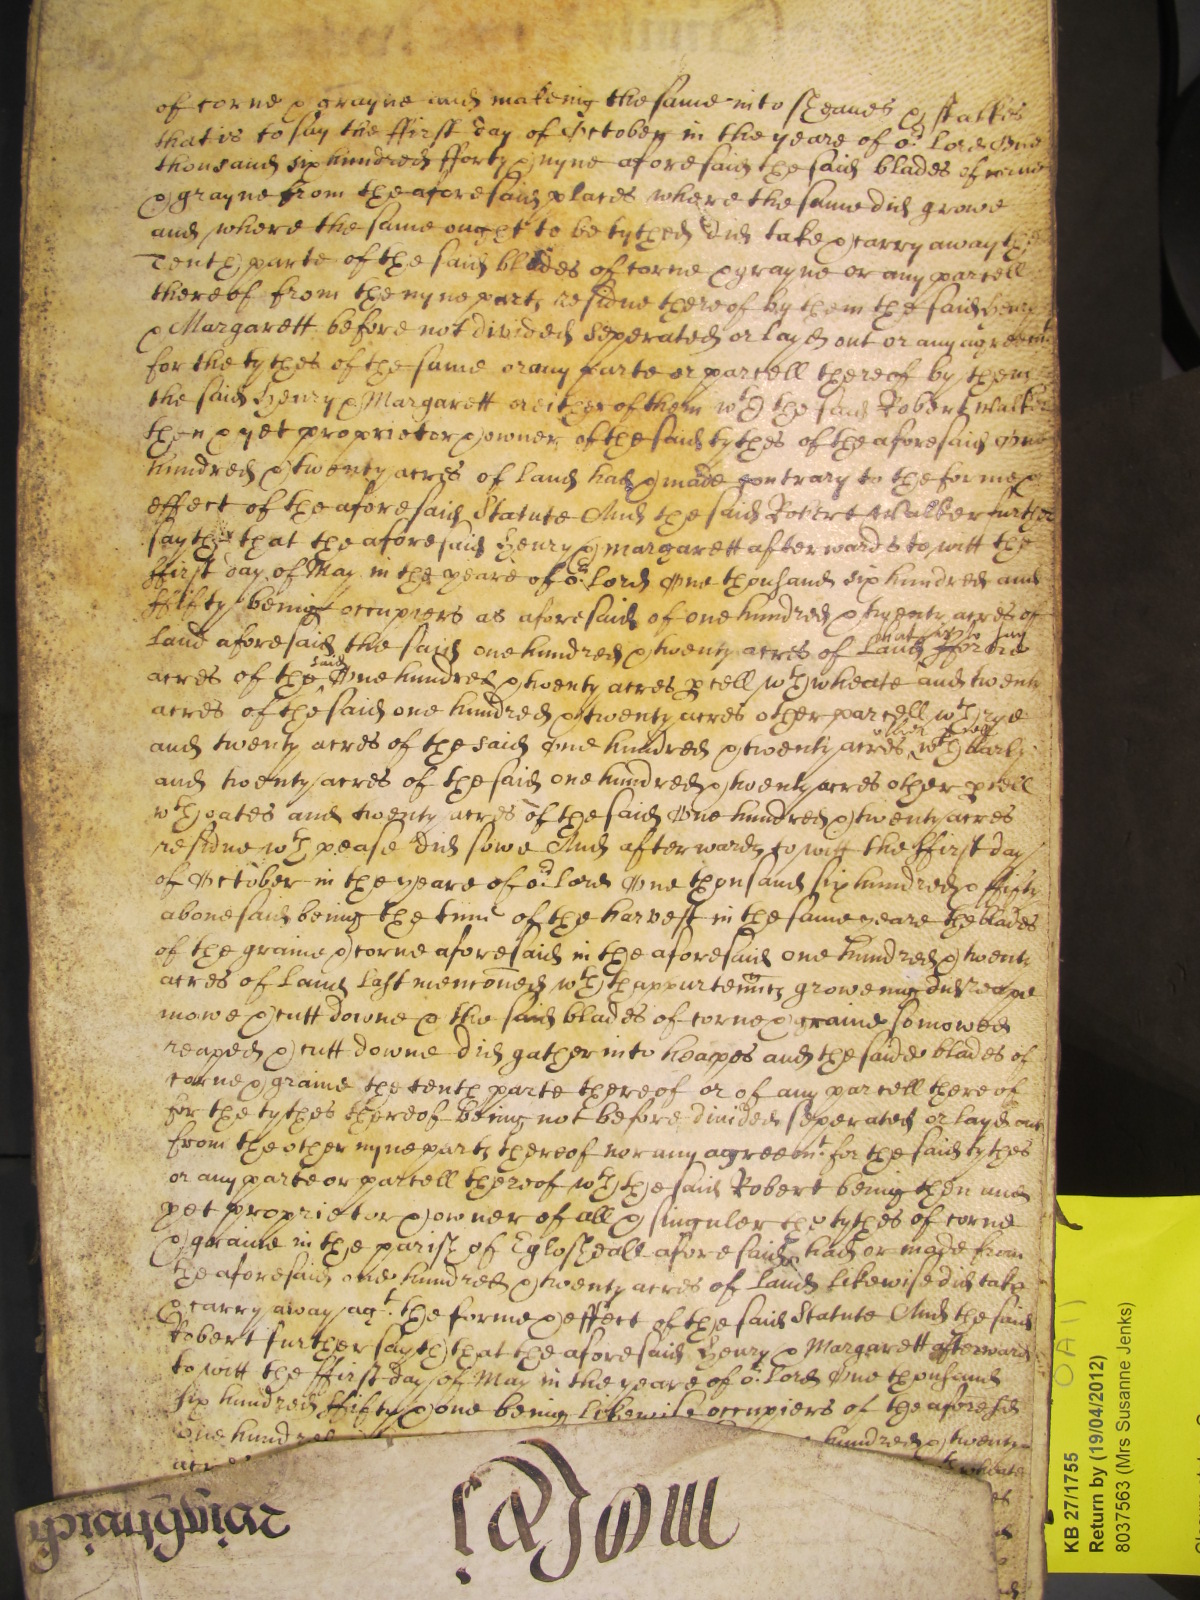 of corne & grayne and makeing the same into sheaues & stalkes
that is to say the ffirst day of October in the yeare of or Lord One
thousand six hundred fforty & nyne aforesaid the said blades of corne
& grayne from the aforesaid places where the same did growe
and where the same ought to be tythed did take & carry away the
Tenth parte of the said blades of corne & grayne or any parcell
thereof from the nyne partes residue thereof by them the said Henry
& Margarett before not divided seperated or layed out or any agreemt
for the tythes of the same or any parte or parcell thereof by them
the said Henry & Margarett or either of them wth the said Robert Walker
then & yet proprietor & owner of the said tythes of the aforesaid One
hundred & twenty acres of land had & made contrary to the forme &
effect of the aforesaid Statute And the said Robert Walker further
sayth that the aforesaid Henry & Margarett afterwards to witt the
ffirst day of May in the yeare of or Lord One thousand six hundred and
ffifty being occupiers as aforesaid of one hundred & twenty acres of
Land aforesaid the said one hundred & twenty acres of Land that is to say
acres of the said One hundred & twenty acres pcell wth wheate and twenty
acres of the said one hundred & twenty acres other parcell wth rye
and twenty acres of the said One hundred & twenty acres other pcell wth barly
and twenty acres of the said one hundred & twenty acres other pcell
wth oates and twenty acres of the said One hundred & twenty acres
residue wth pease did sowe And afterwards to witt the ffirst day
of October in the yeare of or Lord One thousand six hundred & ffifty
abouesaid being the time of the harvest in the same yeare the blades
of the graine & corne aforesaid in the aforesaid one hundred & twenty
acres of Land last menconed wth thappurtennces groweing did reape
mowe & cutt downe & the said blades of corne & graine so mowed
reaped & cutt downe did gather into heapes and the saide blades of
corne & graine the tenth parte thereof or of any parcell thereof
for the tythes thereof being not before divided seperated or layed out
from the other nyne partes thereof nor any agreemt for the said tythes
or any parte or parcell thereof wth the said Robert being then and
yet proprietor & owner of all & singuler the tythes of corne
& graine in the parish of Eglosheale aforesaid had or made from
the aforesaid one hundred & twenty acres of land likewise did take
& carry away agt the forme & effect of the said Statute And the said
Robert further sayth that the aforesaid Henry & Margarett afterward
to witt the ffirst day of May in the yeare of or Lord One thousand
six hundred ffifty & one being likewise occupiers of the aforesaid
One hundred hundred & twenty
wheate
Wightwich
KB 27/1755
Return by (19/04/2012)
8037563 (Mrs Susanne Jenks)